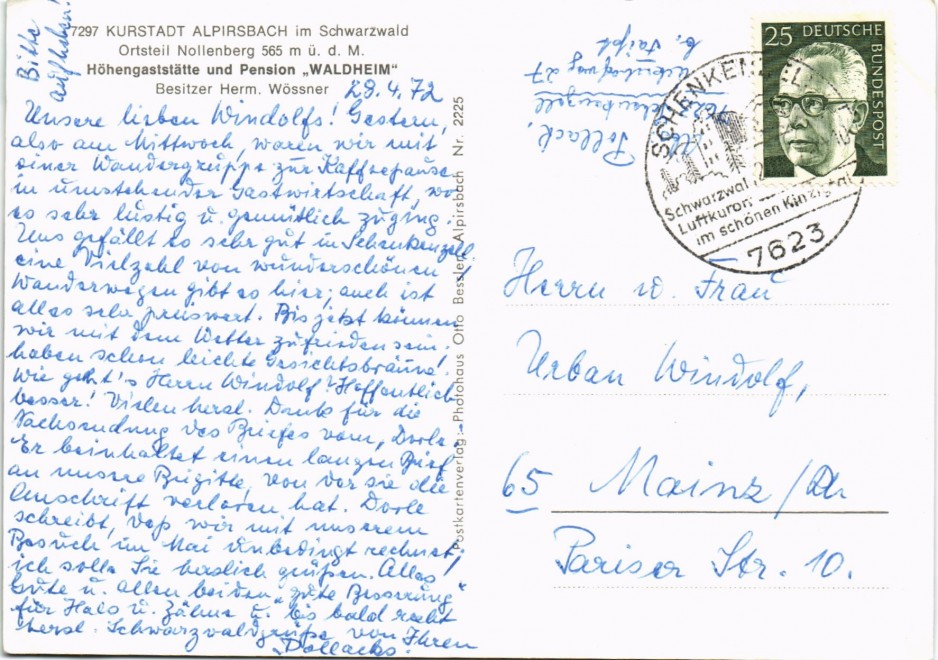 Bitte
aufheben!
7297 KURSTADT ALPIRSBACH im Schwarzwald
Ortsteil Nollenberg 565 m ü. d. M.
Höhengaststätte und Pension „WALDHEIM"
Besitzer Herm. Wössner
29.4.72
Unsere lieben Windolfs! Gestern,
also am Mittwoch, waren wir mit
einer Wandergruppe zur Kaffeepause
in umstehender Gastwirtschaft, wo
es sehr lustig u. gemütlich zuging.
Uns gefällt es sehr gut in Schenkenzell,
eine Vielzahl von wunderschönen
Wanderwegen gibt es hier; auch ist
alles sehr preiswert. Bis jetzt können
wir mit dem Wetter zufrieden sein,
haben schon leichte Gesichtsbräune!
Wie geht's Herrn Windolf? Hoffentlich
besser! Vielen herzl. Dank für die
Nachsendung des Briefes von „Dorle".
Er beinhaltet einen langen Brief
an unsere Brigitte, von der sie die
Anschrift verloren hat. Dorle
schreibt, daß wir mit unserem
Besuch im Mai unbedingt rechnet;
ich solle Sie herzlich grüßen. Alles
Gute u. allen beiden „gute Besserung"
für Hals u. Zähne u. bis bald recht
herzl. Schwarzwaldgrüße von Ihren
„Pollacks".
Postkartenverlag: Photohaus Otto Bessler, Alpirsbach Nr. 2225
Pollack,
7623 Schenkenzell
27
b.
25
DEUTSCHE
BUNDESPOST
SCHENKENZELL
Schwarzwal
Luftkurort
im schönen Kinzigtal
7623
Herrn u. Frau
Urban Windolf,
65 Mainz/Rh
Pariser Str. 10.